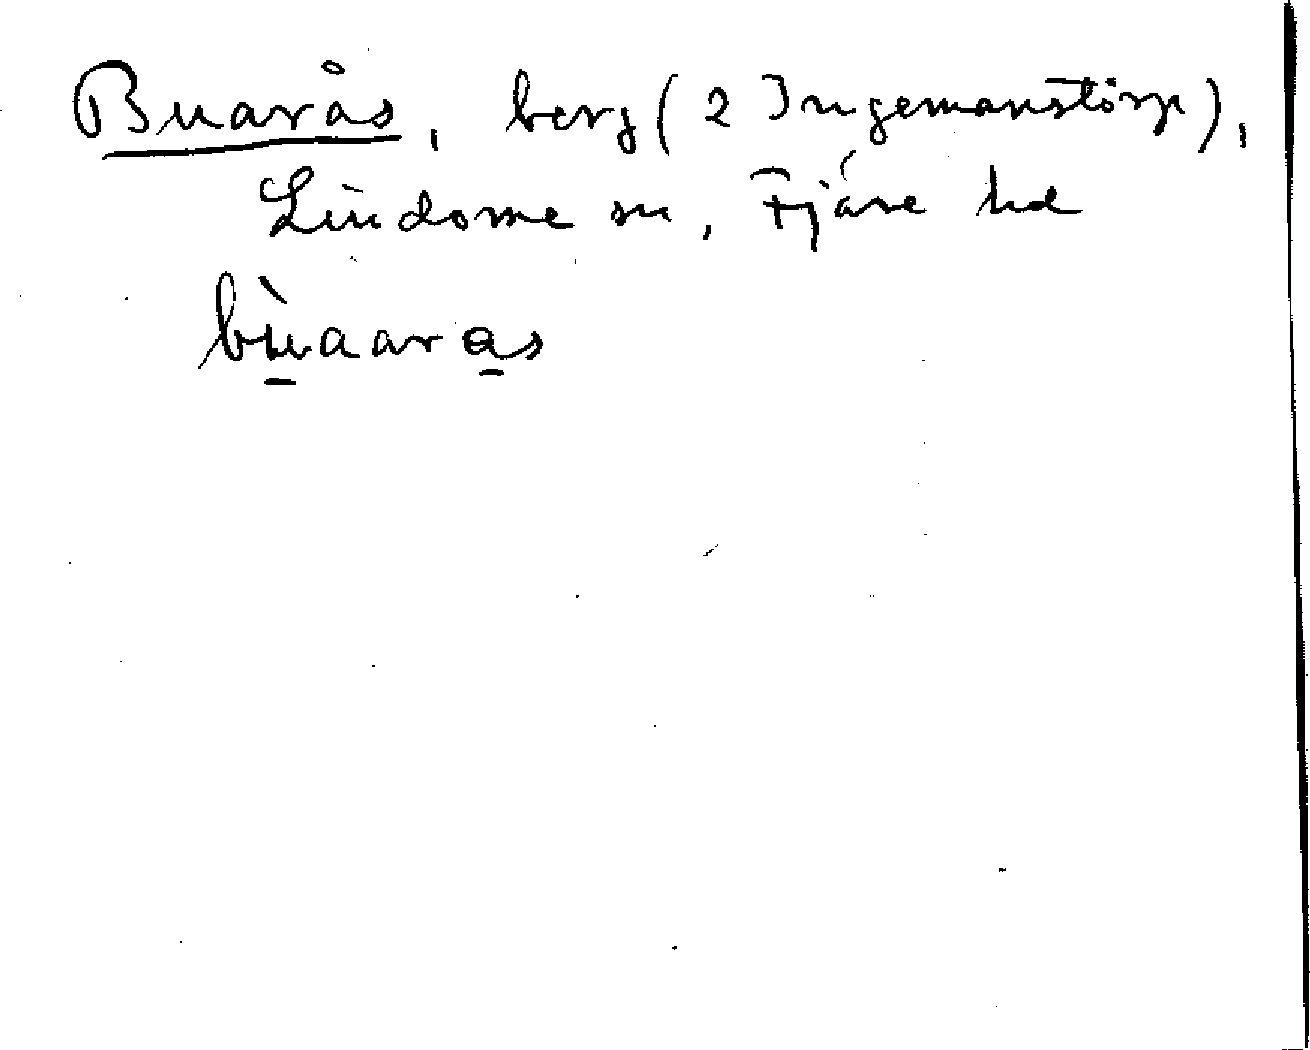 Buarås, berg (2 Ingemanstorp),
Lindome sn, Fjäre hd
bùaaras